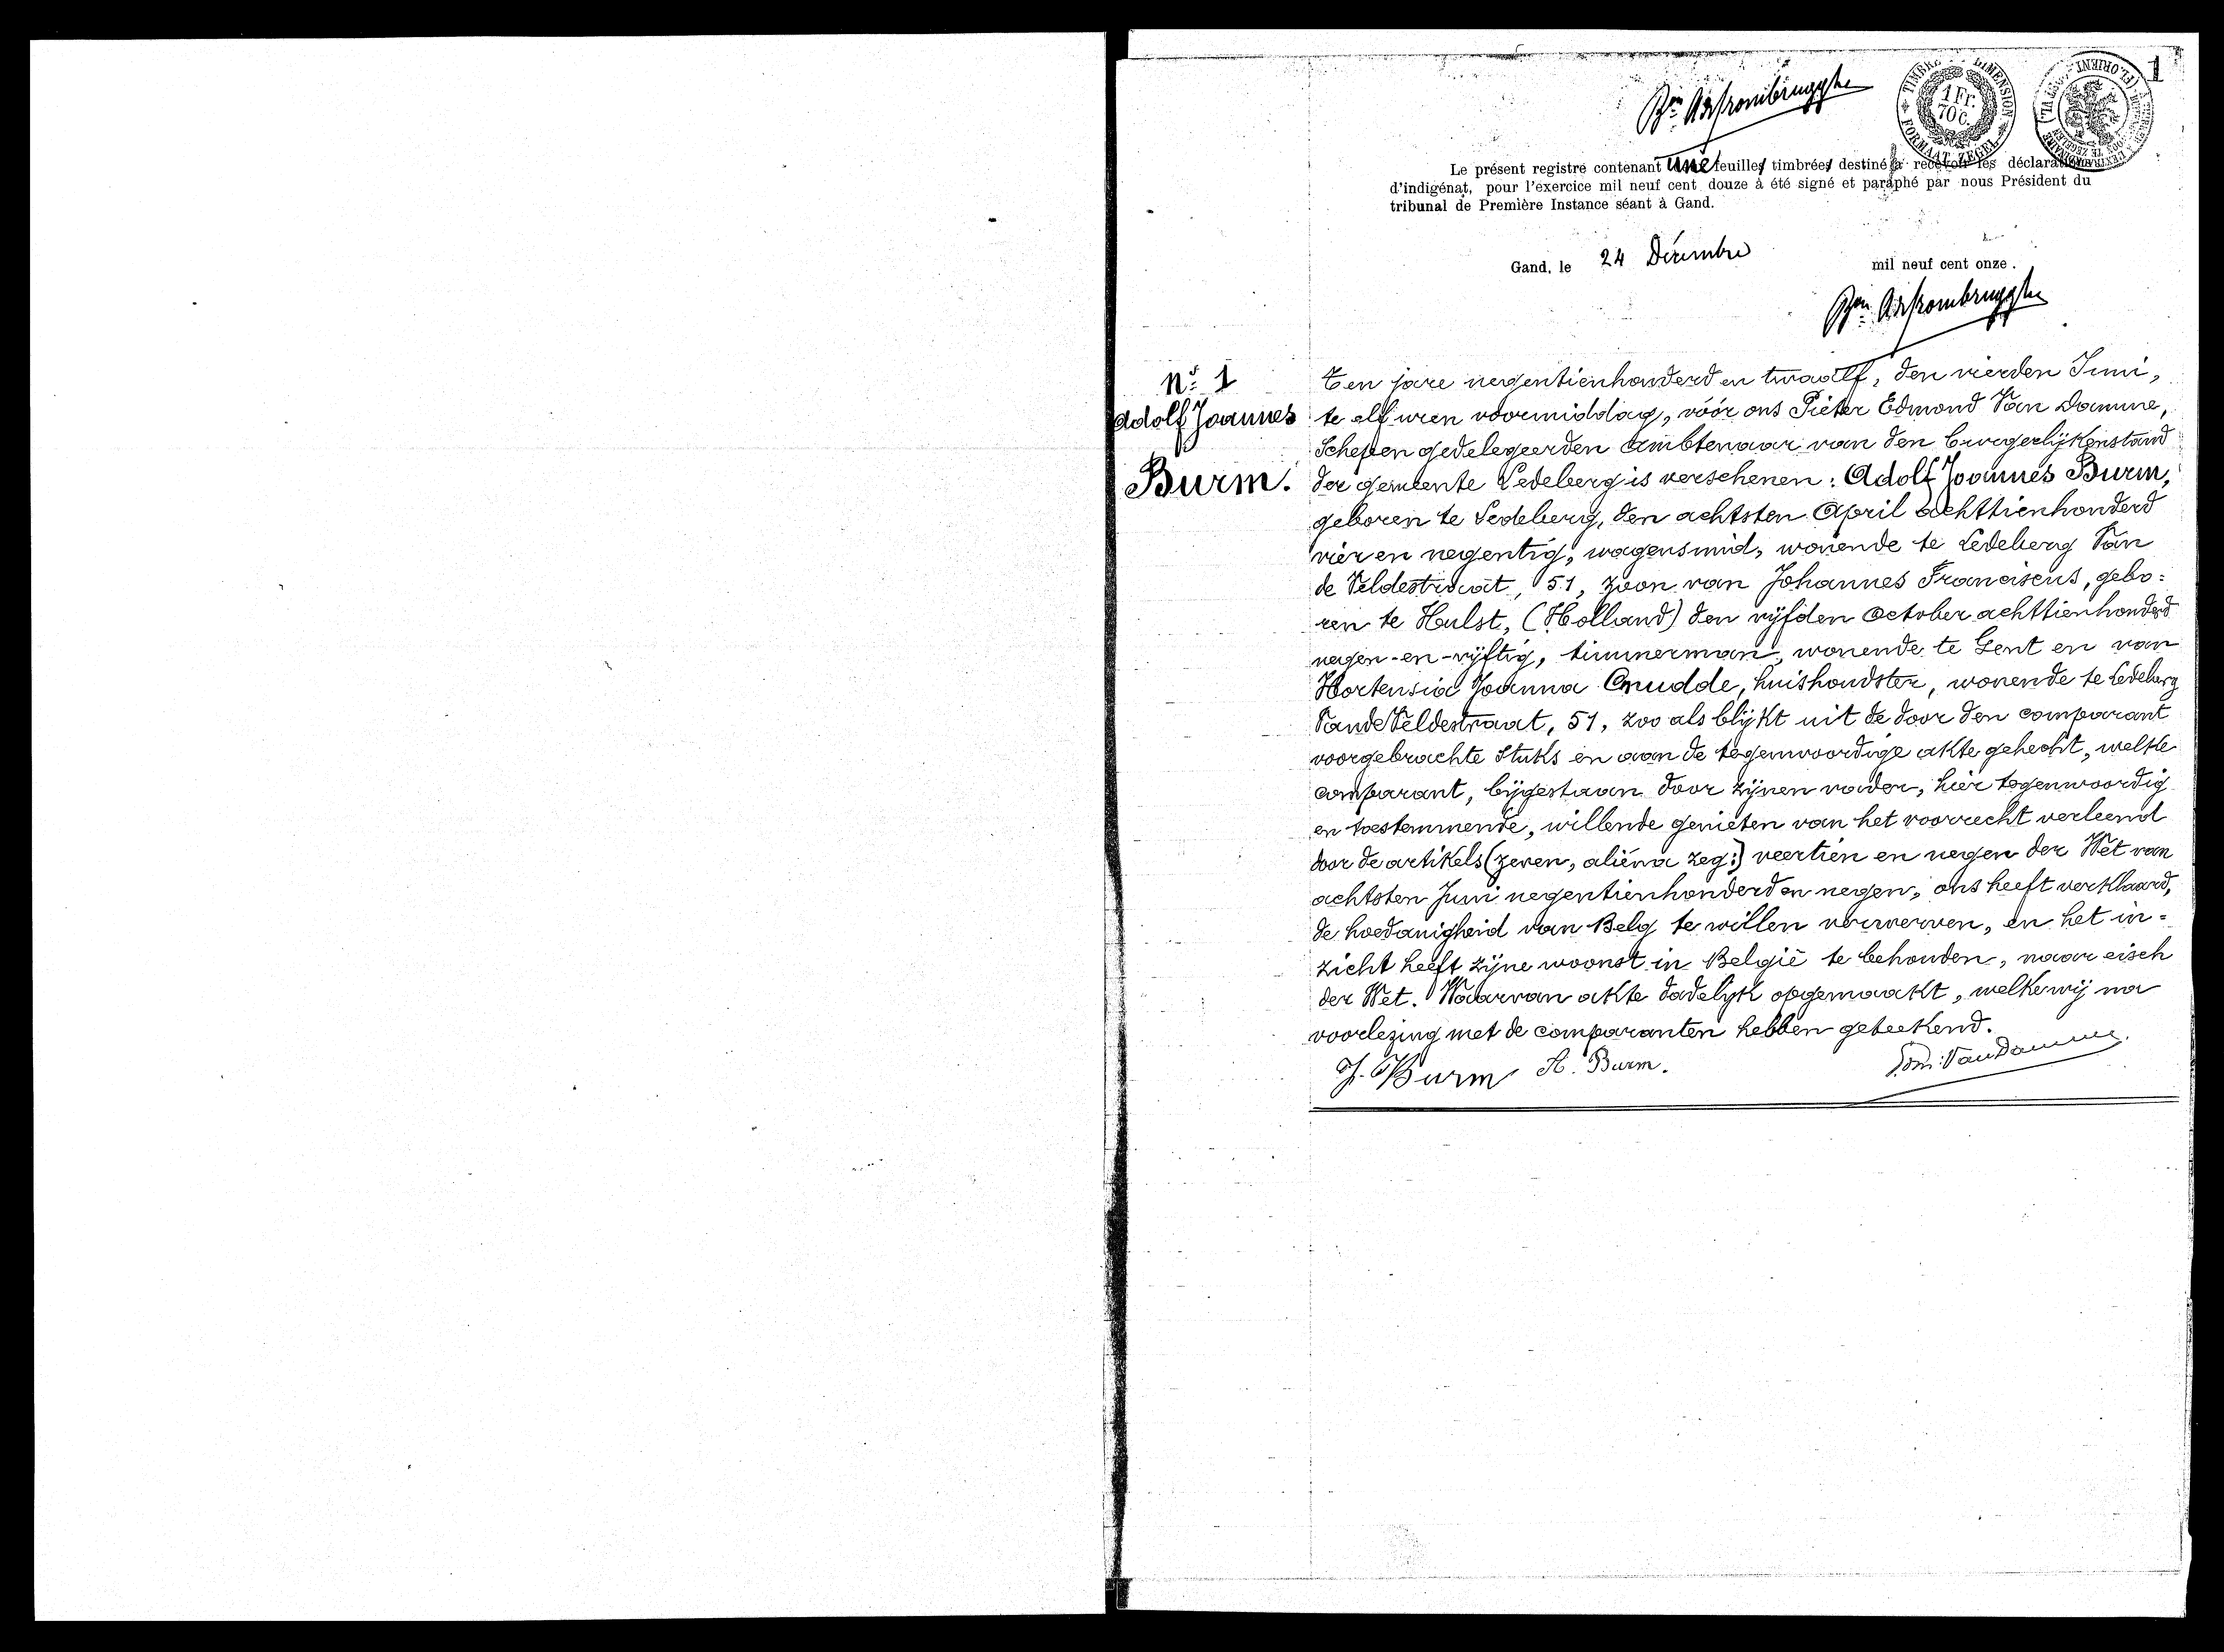 1
TIMBRE DIMENSION
1 Fr. 70 C.
FORMAAT ZEGEL
Le présent registre contenant une feuilles timbrées destiné à recevoir les déclarations
d'indigénat, pour l'exercice mil neuf cent douze à été signé et paraphé par nous Président du
tribunal de Première Instance séant à Gand.
Gand, le 24 Décembre mil neuf cent onze.
N° 1
Adolf Joannes
Burm.
Ten jare negentienhonderd en twaalf, den vierden Juni,
te elf uren voormiddag, vóór ons Pieter Edmond Van Damme,
Schepen gedelegeerden Ambtenaar van den burgerlijkenstand
der gemeente Ledeberg is verschenen: Adolf Joannes Burm,
geboren te Ledeberg, den achtsten April achttienhonderd
vier en negentig, wagensmid, wonende te Ledeberg Van
de Veldestraat, 51, zoon van Johannes Franciscus, gebo=
ren te Hulst, (Holland) den vijfden October achttienhonderd
negen-en-vijftig, timmerman, wonende te Gent en van
Hortensia Joanna Cnudde, huishoudster, wonende te Ledeberg
Vande Veldestraat, 51, zoo als blijkt uit de door den comparant
voorgebrachte stuks en aan de tegenwoordige akte gehecht, welke
comparant, bijgestaan door zijnen vader, hier tegenwoordig
en toestemmende, willende genieten van het voorrecht verleend
door de artikels (zeven, aliéna zeg:) veertien en negen der Wet van
achtsten Juni negentienhonderd en negen, ons heeft verklaard,
de hoedanigheid van Belg te willen verwerven, en het in=
zicht heeft zijne woonst in België te behouden, naar eisch
der Wet. Waarvan akte dadelyk opgemaakt, welke wij na
voorlezing met de comparanten hebben geteekend.
J. Burm A. Burm. Edm: Van Damme